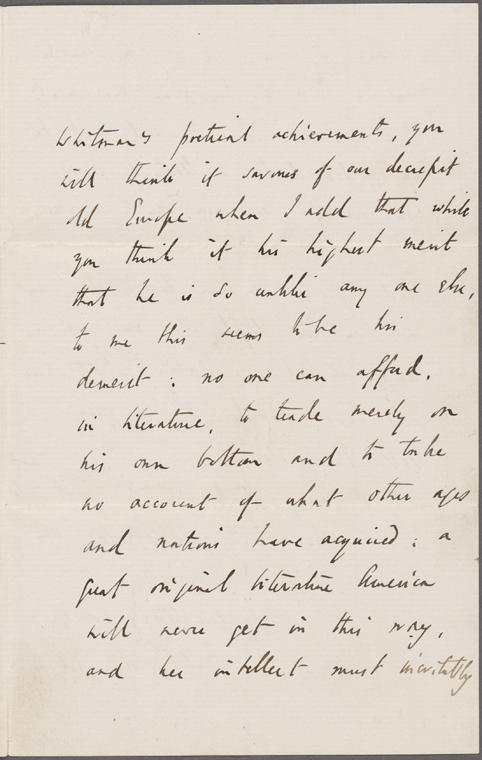 Whitman's poetical achievements, you
will think it savours of our decrepit
old Europe when I add that while
you think it his highest merit
that he is so unlike any one else,
to me this seems to be his
demerit; no one can afford,
in literature, to trade merely on
his own bottom and to take
no account of what other ages
and nations have acquired: a
great original literature America
will never get in this way,
and her intellect must inevitably